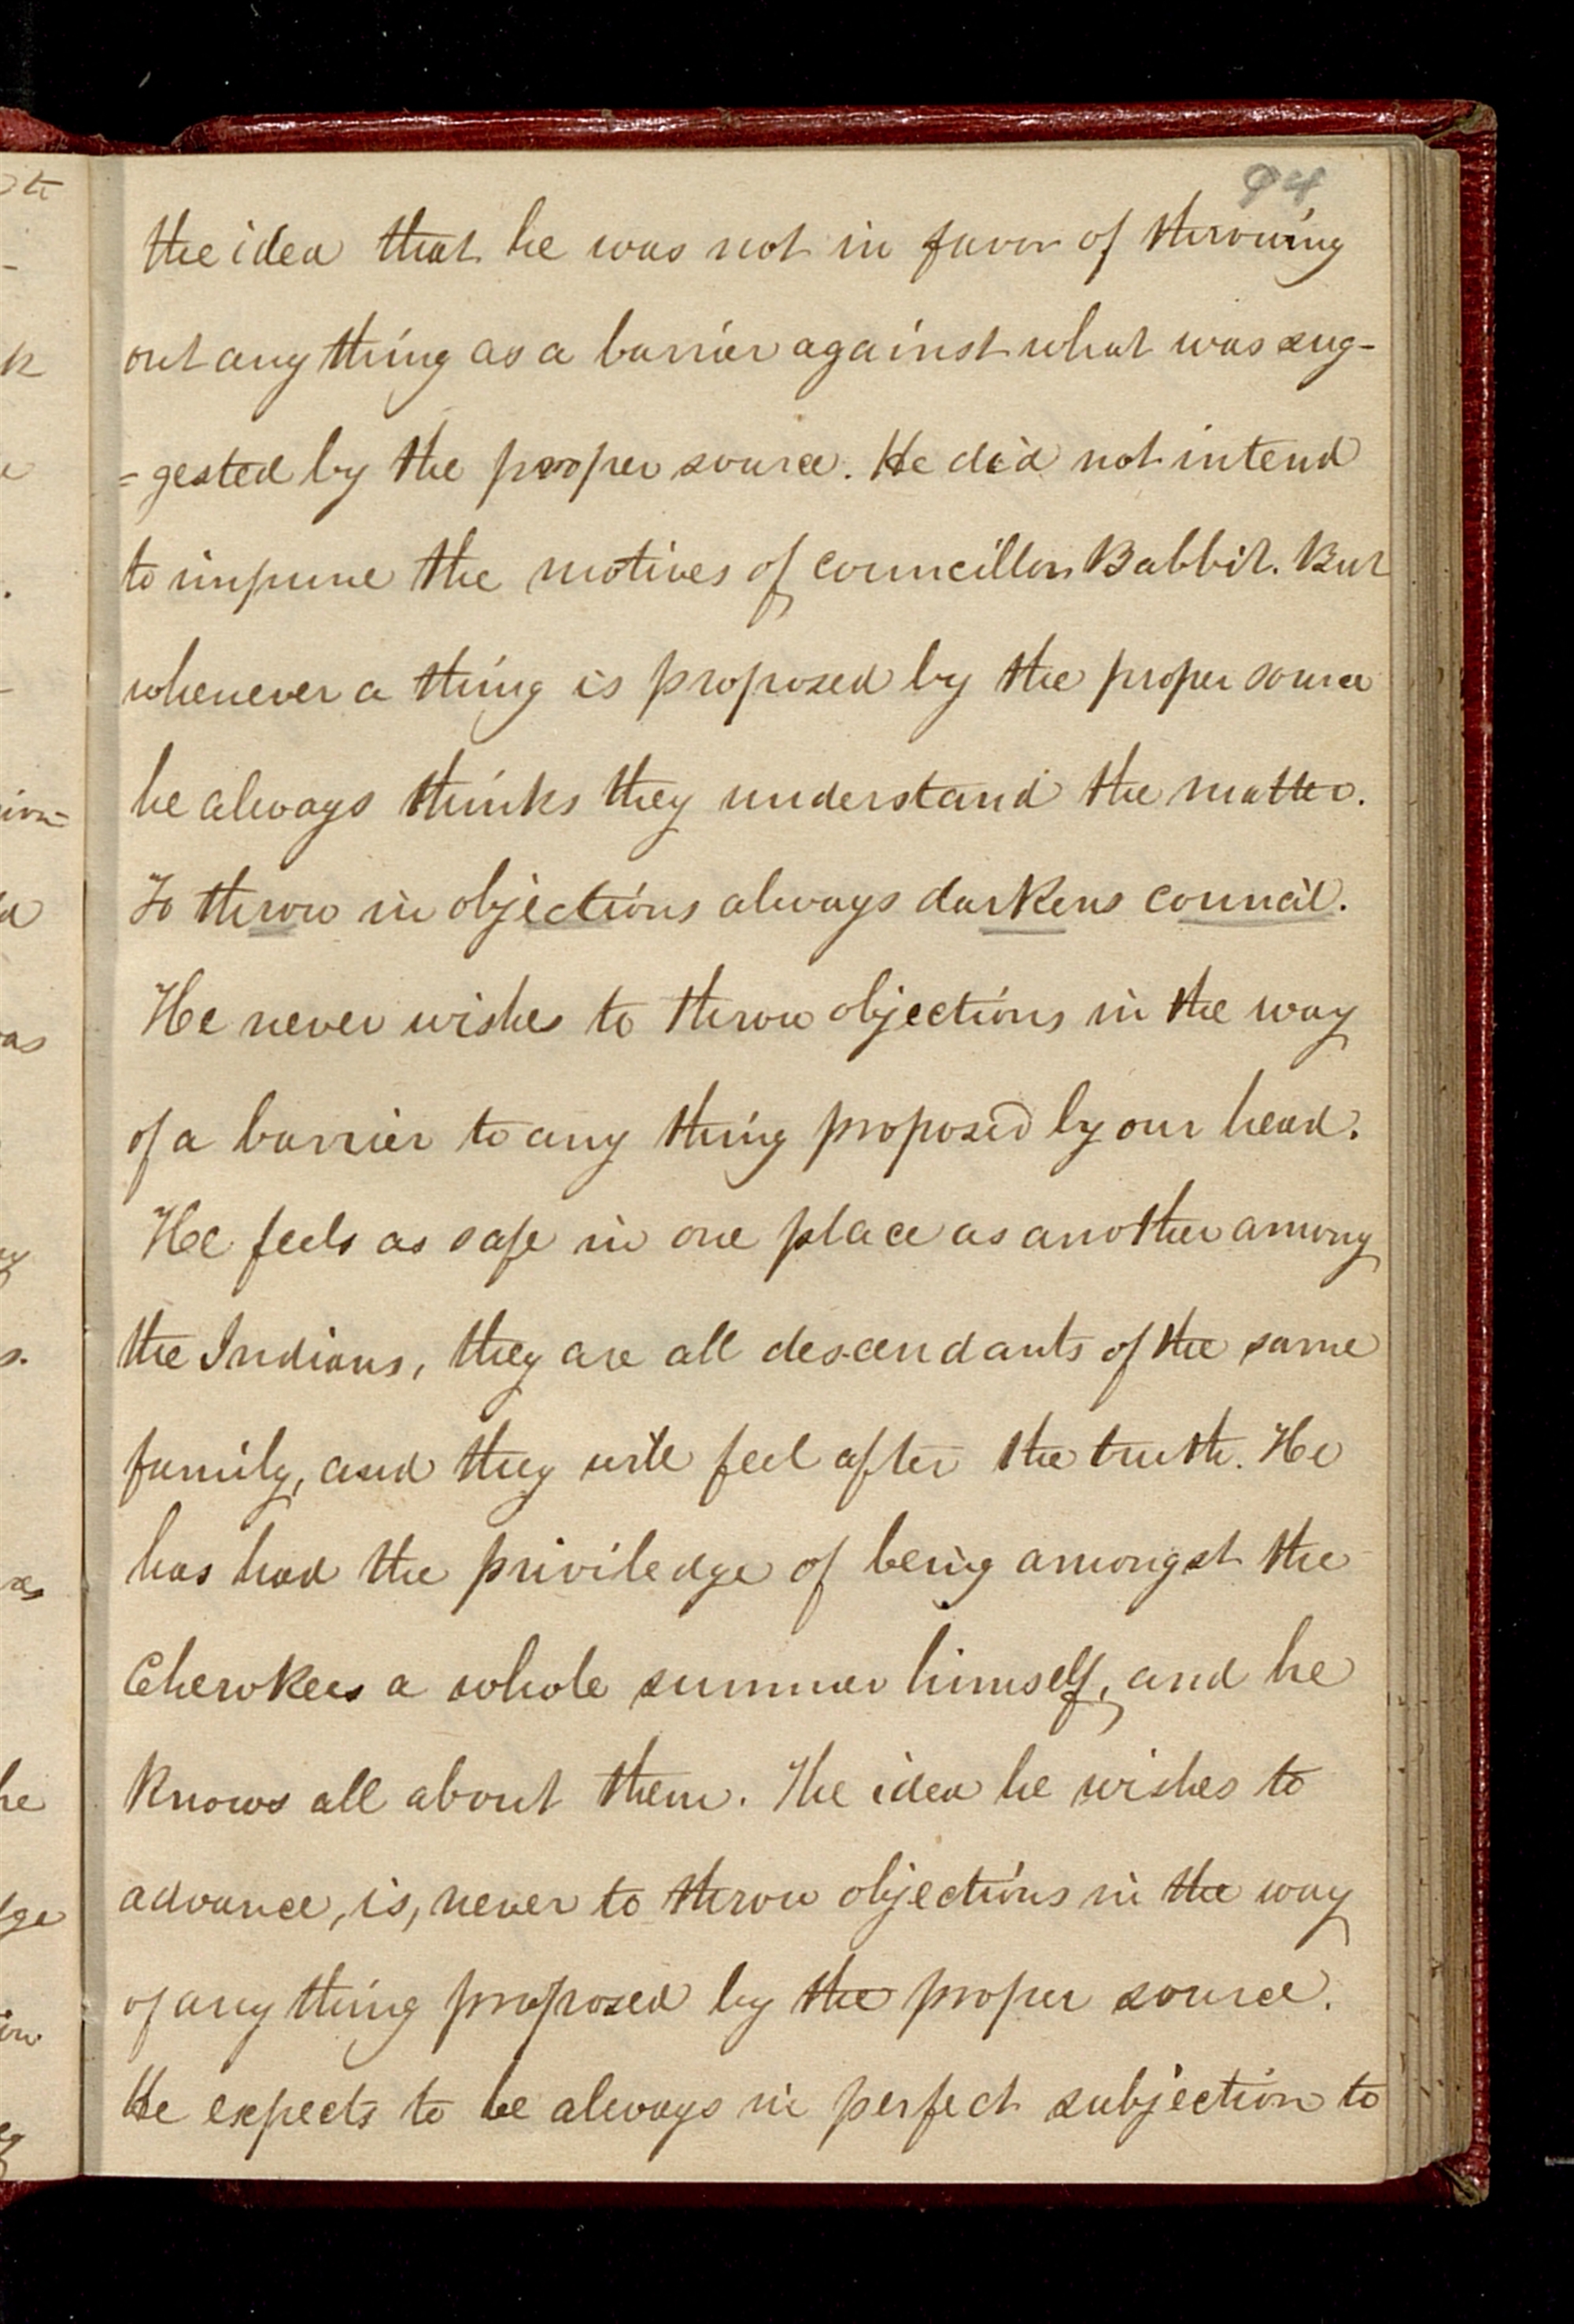 94
the idea that he was not in favor of throwing
out any thing as a barrier against what was sug-
=gested by the proper source. He did not intend
to impune the motives of councillor Babbit. But
whenever a thing is proposed by the proper source
he always thinks they understand the matter.
To throw in objections always darkens council.
He never wishes to throw objections in the way
of a barrier to any thing proposed by our head.
He feels as safe in one place as another among
the Indians, they are all descendants of the same
family, and they will feel after the truth. He
has had the priviledge of being amongst the
Cherokees a whole summer himself, and he
knows all about them. The idea he wishes to
advance, is, never to throw objections in the way
of any thing proposed by the proper source.
He expects to be always in perfect subjection to